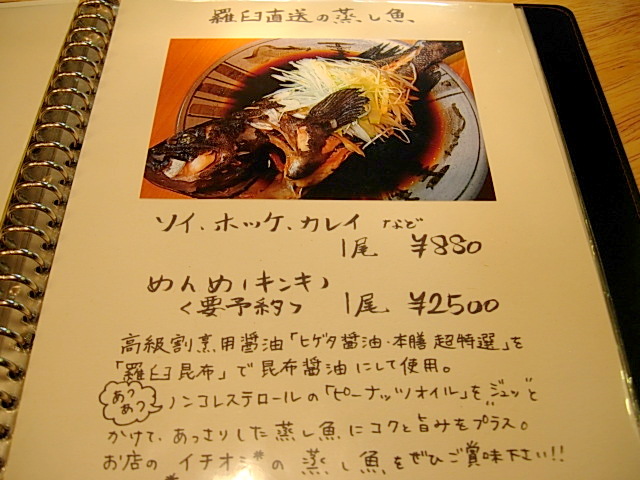 羅臼直送の蒸し魚
ソイ、ホッケ、カレイ など
1尾 ¥880
めんめ(キンキ)
<要予約> 1尾 ¥2500
高級割烹用醤油「ヒゲタ醤油・本膳 超特選」を
「羅臼昆布」で昆布醤油にして使用。
あつあつ ノンコレステロールの「ピーナッツオイル」を"ジュッ"と
かけて、あっさりした蒸し魚にコクと旨みをプラス。
お店の イチオシ の 蒸し魚をぜひご賞味下さい!!